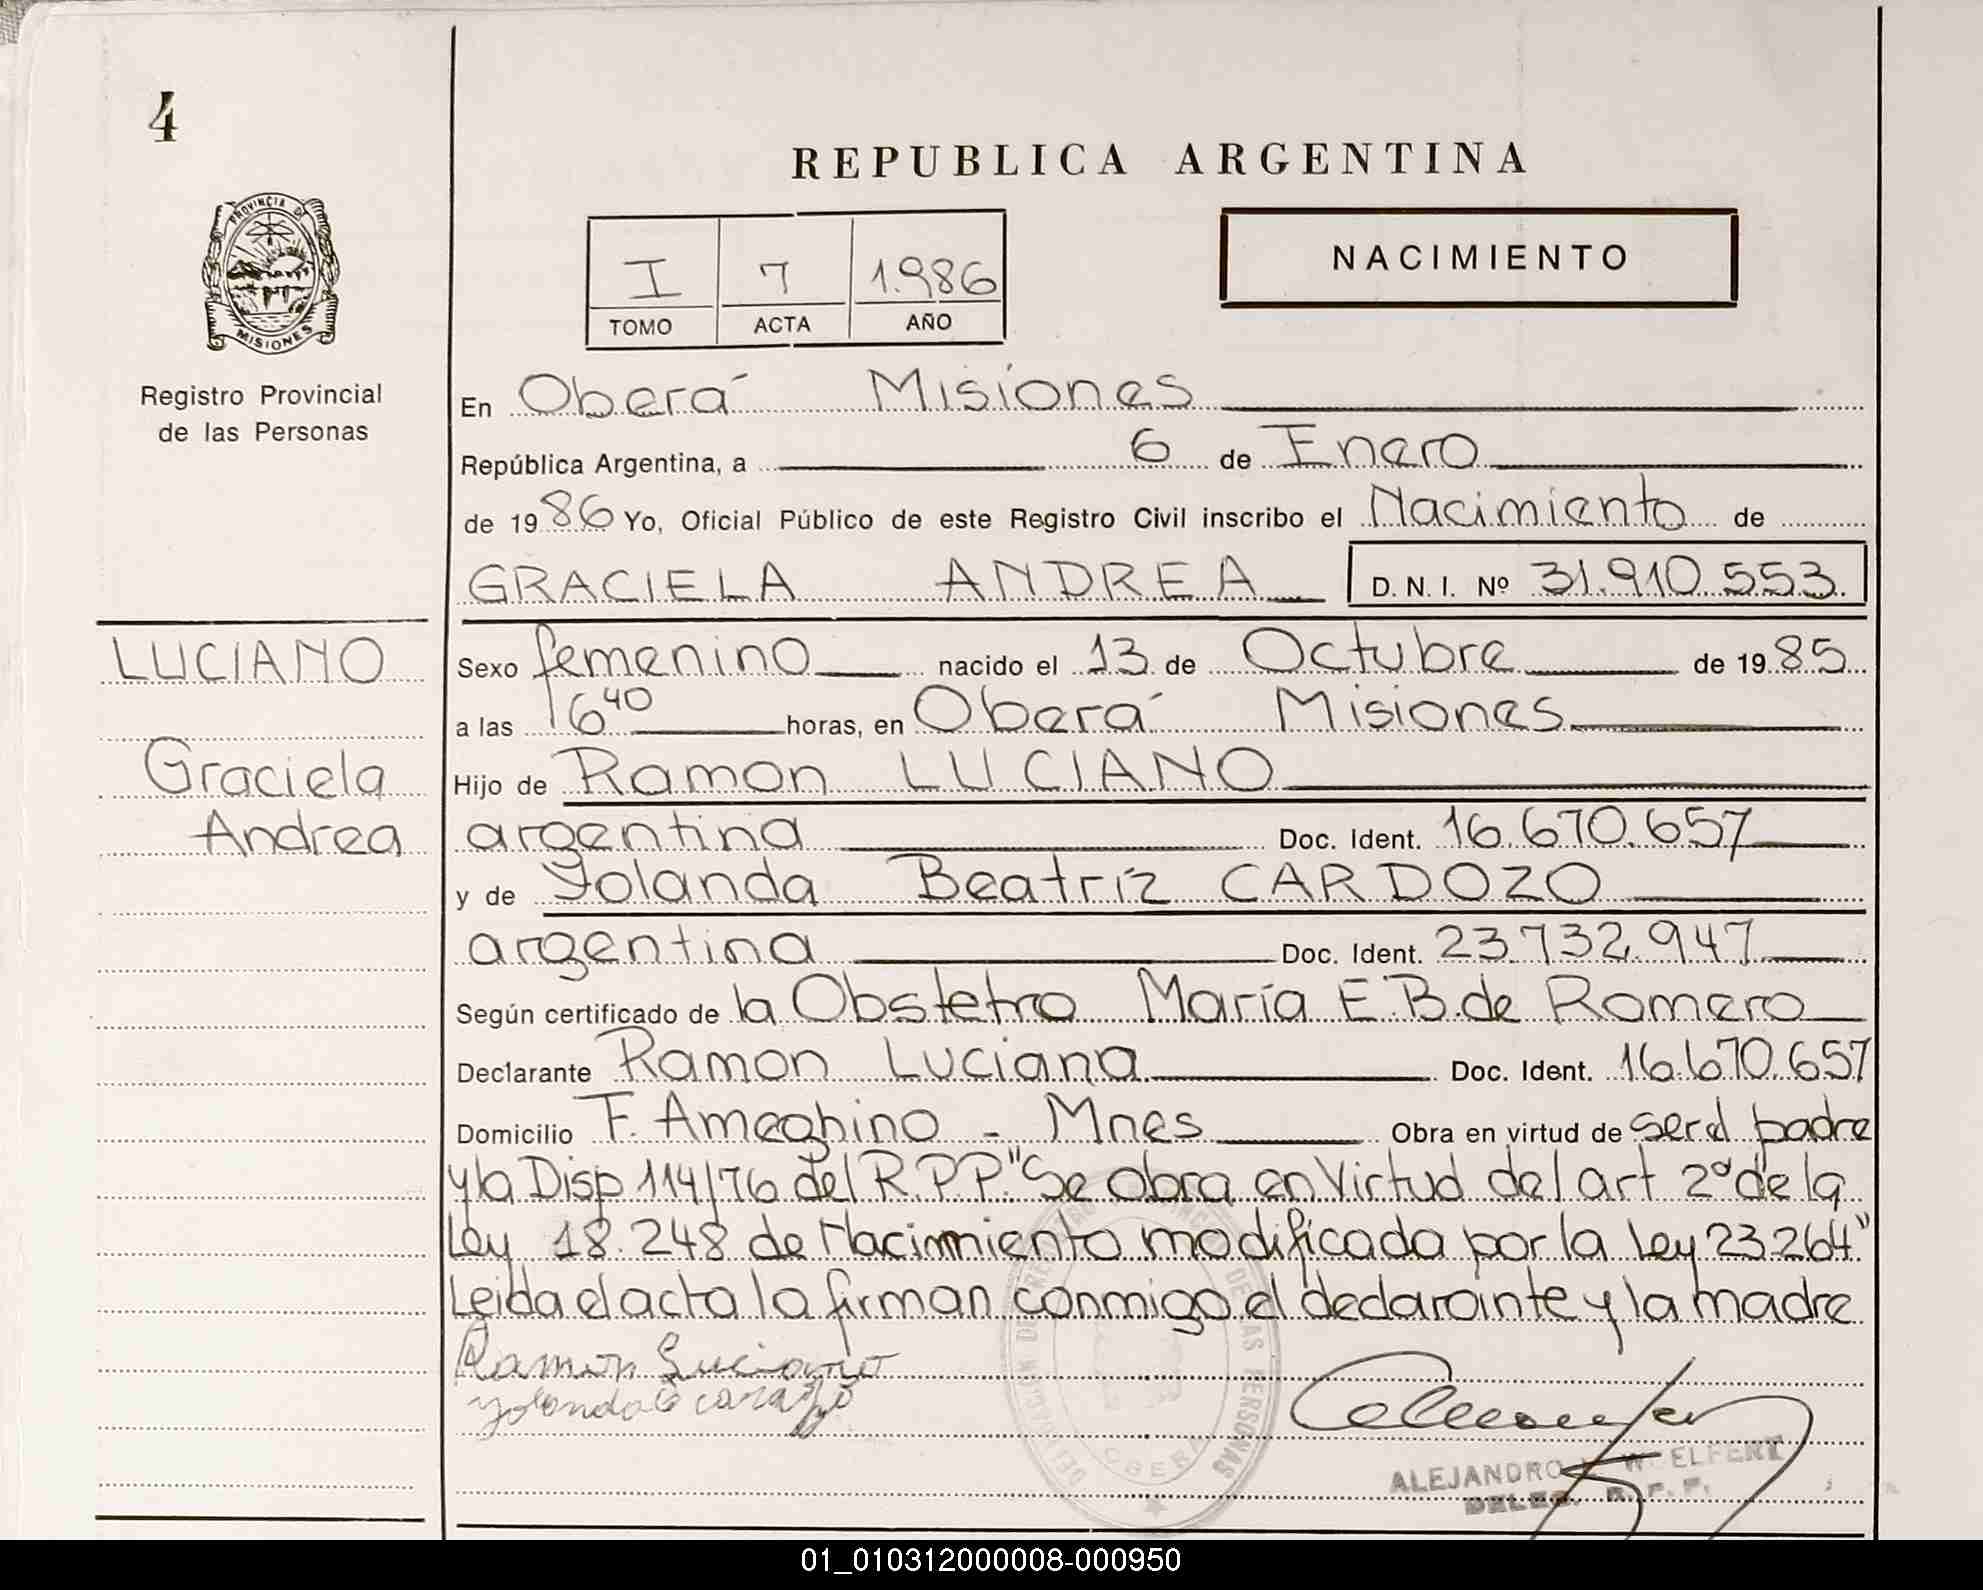 4
REPUBLICA ARGENTINA
PROVINCIA DE
MISIONES
I 7 1.986
TOMO ACTA AÑO
NACIMIENTO
Registro Provincial
de las Personas
En Oberá Misiones
República Argentina, a 6 de Enero
de 1986 Yo, Oficial Público de este Registro Civil inscribo el Nacimiento de
GRACIELA ANDREA D.N.I. Nº 31.910.553.
LUCIANO
Graciela
Andrea
Sexo femenino nacido el 13 de Octubre de 1985
a las 16 40 horas, en Oberá Misiones
Hijo de Ramon LUCIANO
argentina Doc. Ident. 16.670.657
y de Yolanda Beatríz CARDOZO
argentina Doc. Ident. 23.732.947
Según certificado de la Obstetro María E.B. de Romero
Declarante Ramon Luciano Doc. Ident. 16.670.657
Domicilio F. Ameghino - Mnes Obra en virtud de ser el padre
y la Disp 114/76 del R.P.P. "Se obra en Virtud del art 2º de la
Ley 18.248 de Nacimiento modificada por la Ley 23264"
Leida el acta la firman conmigo el declarante y la madre
Ramon Luciano
Yolanda
DELEGACION DE REGISTRO PROVINCIAL DE LAS PERSONAS
OBERA
ALEJANDRO W. ELFERT
DELEG. R. P. P.
01_010312000008-000950